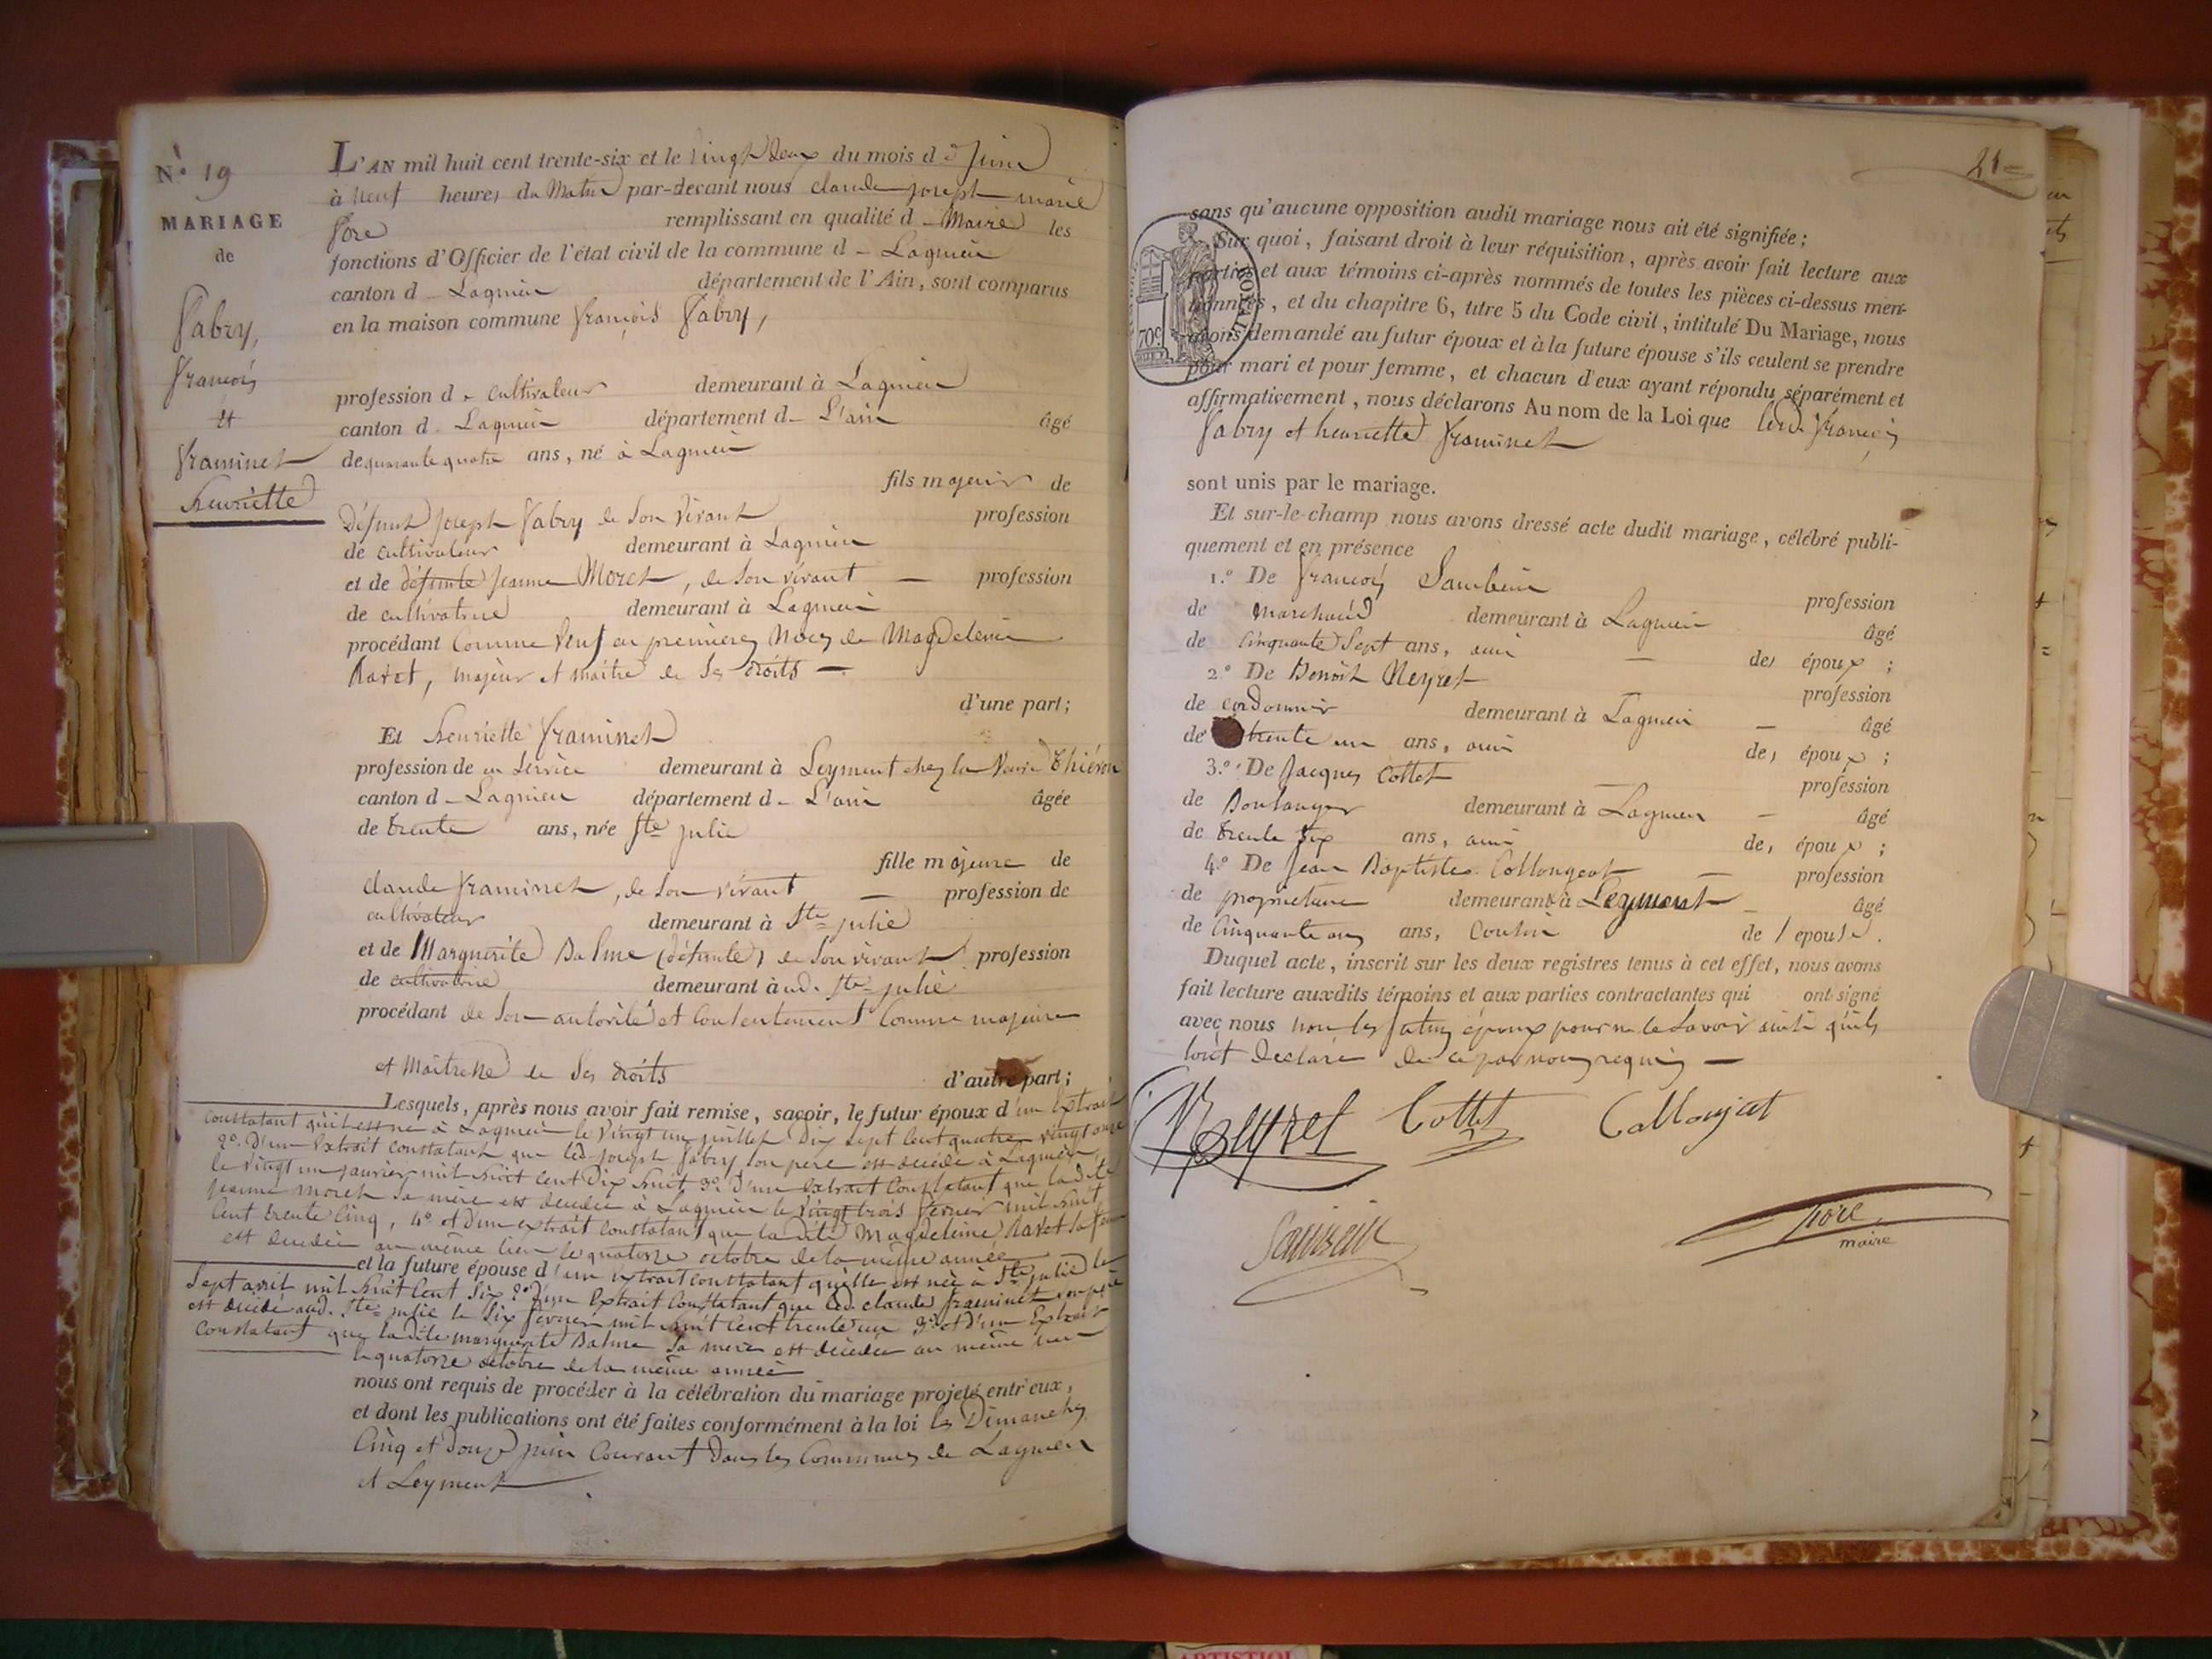 N.º 19
MARIAGE
de
Fabry,
françois
et
framinet
henriette
L'AN mil huit cent trente-six et le vingt deux du mois de Juin
à neuf heures du Matin par-devant nous claude joseph marie
fore remplissant en qualité d - Maire les
fonctions d'Officier de l'état civil de la commune d - Lagnieu
canton d - Lagnieu département de l'Ain, sont comparus
en la maison commune françois Fabry,
profession d - cultivateur demeurant à Lagnieu
canton d - Lagnieu département d - L'ain âgé
de quarante quatre ans, né à Lagnieu
fils majeur de
Défunt joseph Fabry de son vivant profession
de cultivateur demeurant à Lagnieu
et de défunte jeanne Moret, de son vivant — profession
de cultivatrice demeurant à Lagnieu
procédant comme veuf en premieres noces de Magdeleine
Ravet, majeur et maitre de ses droits —
d'une part;
Et henriette framinet
profession de en service demeurant à Leyment chez la veuve
canton d - Lagnieu département d - L'ain âgée
de trente ans, née Ste julie
fille majeure de
claude framinet, de son vivant — profession de
cultivateur demeurant à Ste julie
et de Marguerite Balme (défunte) de son vivant profession
de cultivatrice demeurant à ud. Ste julie
procédant de son autorité et consentement comme majeure
et maitresse de ses droits d'autre part;
Lesquels, après nous avoir fait remise, savoir, le futur époux d'un extrait
constatant qu'il est né à Lagnieu le vingt un juillet dix sept cent quatre vingt onze
2º. D'un extrait constatant que led. joseph fabry son père est décédé à Lagnieu
le vingt un janvier mil huit cent dix huit 3º. D'un extrait constatant que la dite
jeanne moret sa mère est décédée à Lagnieu le vingt trois fevrier mil huit
cent trente cinq, 4º et d'un extrait constatant que la dite Magdeleine Ravet sa
est décédée au même lieu le quatorze octobre de la même année
et la future épouse d'un extrait constatant qu'elle est née à Ste julie le
sept avril mil huit cent six 2º d'un extrait constatant que led. claude framinet son père
est décédé aud. Ste julie le six fevrier mil huit cent trente un 3º et d'un Extrait
constatant que la dite marguerite Balme sa mere est décédée au même lieu
le quatorze octobre de la même année
nous ont requis de procéder à la célébration du mariage projeté entr'eux,
et dont les publications ont été faites conformément à la loi les Dimanches
cinq et douze juin courant dans les communes de Lagnieu
et Leyment
21
70c
sans qu'aucune opposition audit mariage nous ait été signifiée;
Sur quoi, faisant droit à leur réquisition, après avoir fait lecture aux
parties et aux témoins ci-après nommés de toutes les pièces ci-dessus men-
tionnées, et du chapitre 6, titre 5 du Code civil, intitulé Du Mariage, nous
avons demandé au futur époux et à la future épouse s'ils veulent se prendre
pour mari et pour femme, et chacun d'eux ayant répondu séparément et
affirmativement, nous déclarons Au nom de la Loi que led. françois
fabry et henriette framinet
sont unis par le mariage.
Et sur-le-champ nous avons dressé acte dudit mariage, célébré publi-
quement et en présence
1.º De françois profession
de marchand demeurant à Lagnieu âgé
de cinquante sept ans, ami — des époux;
2.º De Benoît Neyret profession
de cordonnier demeurant à Lagnieu — âgé
de trente un ans, ami des époux;
3.º De Jacques Cottet — profession
de Boulanger demeurant à Lagnieu — âgé
de trente six ans, ami des époux;
4.º De Jean Baptiste Collongeat — profession
de proprietaire demeurant à Leyment — âgé
de cinquante ans, cousin de l'épouse.
Duquel acte, inscrit sur les deux registres tenus à cet effet, nous avons
fait lecture auxdits témoins et aux parties contractantes qui ont signé
avec nous non les futurs époux pour ne le savoir ainsi qu'ils
l'ont déclaré de ce par nous requis —
Neyret Cottet Collonjeat
fore
maire